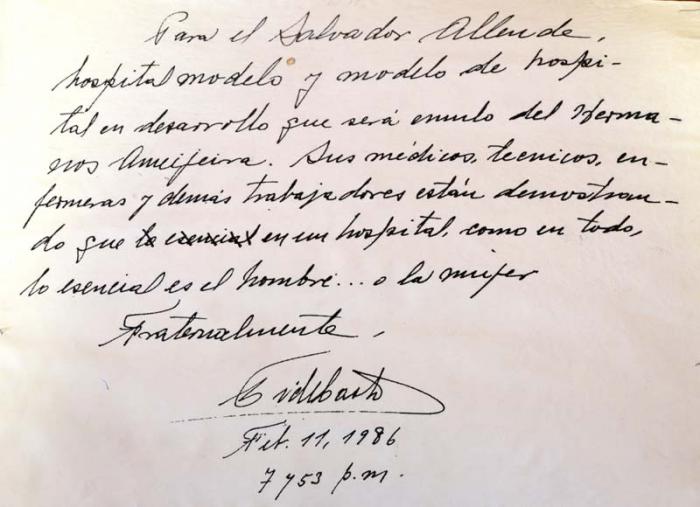 Para el Salvador Allende,
hospital modelo y modelo de hospi-
tal en desarrollo que será emulo del Herma-
nos Ameijeira. Sus médicos, tecnicos, en-
fermeras y demás trabajadores están demostran-
do que lo esencial en un hospital, como en todo,
lo esencial es el hombre... o la mujer
Fraternalmente,
Fidel Castro
Feb. 11, 1986
7 y 53 p.m.